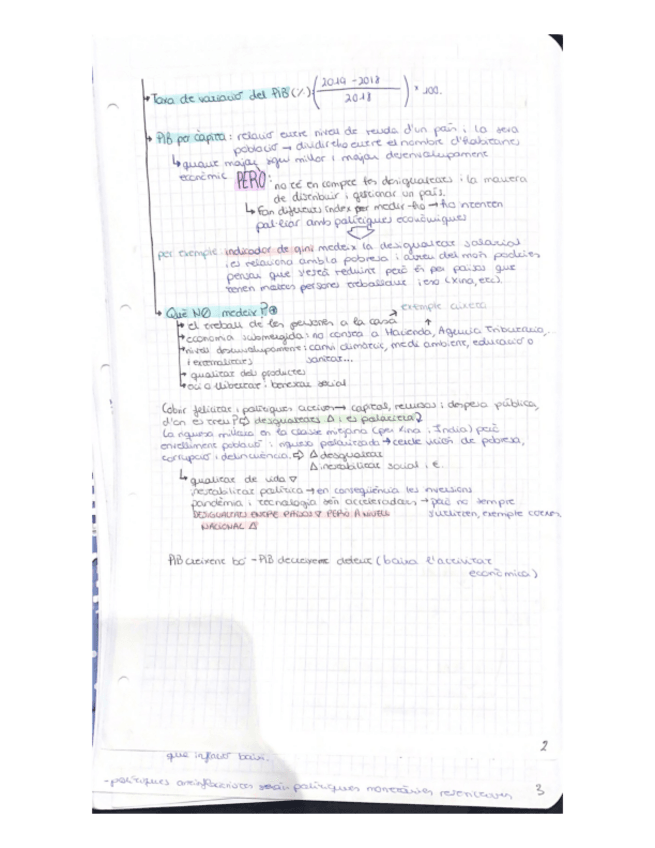 Taxa de variació del PIB (%) = (2019 - 2018 / 2018) * 100.
PIB per càpita: relació entre nivell de renda d'un país i la seva
població → dividir-ho entre el nombre d'habitants
↳ quant major sigui millor i major desenvolupament
econòmic PERÒ: no té en compte les desigualtats i la manera
de distribuir i gestionar un país.
↳ Fan diferents índex per medir-ho → ho intenten
pal·liar amb polítiques econòmiques
per exemple: indicador de gini medeix la desigualtat salarial
i es relaciona amb la pobresa i arreu del món podríem
pensar que s'està reduint però és per països que
tenen moltes persones treballant i eso (Xina, etc).
Què NO medeix?
exemple
el treball de les persones a la casa
economia submergida: no consta a Hacienda, Agencia Tributaria,...
nivell desenvolupament: canvi climàtic, medi ambient, educació o
i externalitats sanitat...
qualitat dels productes
oci o llibertat i benestar social
Cobrir felicitat i polítiques actives → capital, recursos i despesa pública,
d'on es treu? ⇒ desigualtats Δ i es polaritza?
La riquesa millora en la classe mitjana (per Xina i Índia) però
envelliment població i riquesa polaritzada → cercle viciós de pobresa,
corrupció i delinqüència. ⇒ Δ desigualtat
Δ inestabilitat social i e.
↳ qualitat de vida ▽
inestabilitat política → en conseqüència les inversions
pandèmia i tecnologia són acceleradors → però no sempre
DESIGUALTATS ENTRE PAÏSOS ▽ PERÒ A NIVELL
sutileen, exemple
NACIONAL Δ
PIB creixent bo - PIB decreixent dolent (baixa l'activitat
econòmica)
2
que inflació baixi.
- polítiques antiinflacionistes seran polítiques monetàries restrictives
3